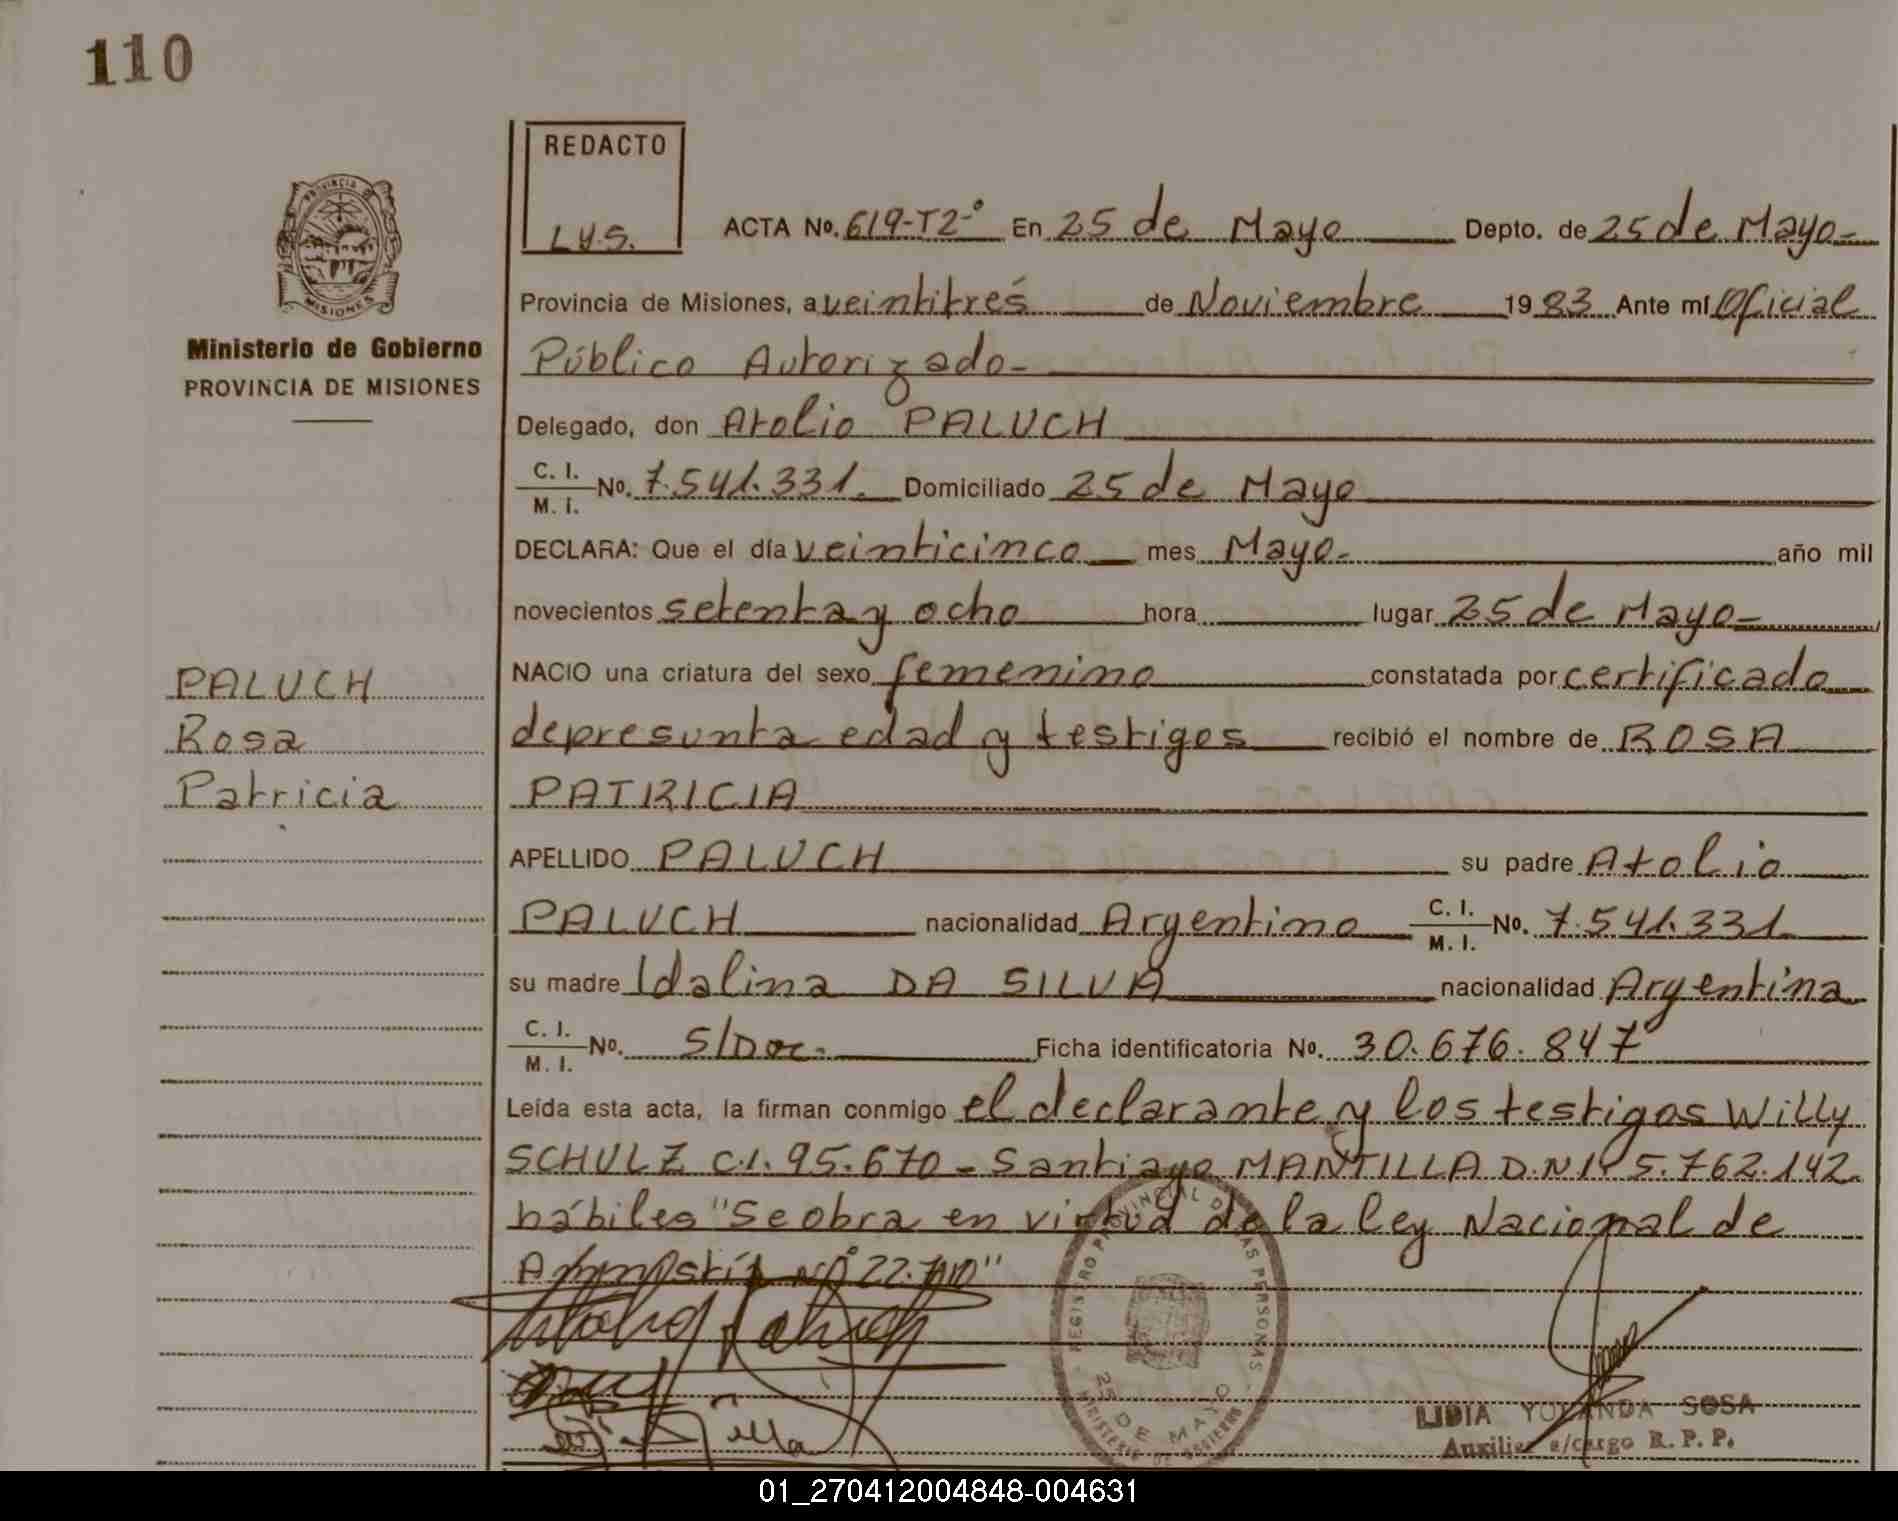 110
REDACTO
L.Y.S.
ACTA No. 619-T2-° En 25 de Mayo Depto. de 25 de Mayo-
Provincia de Misiones, a veintitrés de Noviembre 1983 Ante mí Oficial
Público Autorizado-
Ministerio de Gobierno
PROVINCIA DE MISIONES
Delegado, don Atolio PALUCH
C. I. M. I. No. 7.541.331. Domiciliado 25 de Mayo
DECLARA: Que el día veinticinco mes Mayo- año mil
novecientos setenta y ocho hora lugar 25 de Mayo-
NACIO una criatura del sexo femenino constatada por certificado
de presunta edad y testigos recibió el nombre de ROSA
PATRICIA
PALUCH
Rosa
Patricia
APELLIDO PALUCH su padre Atolio
PALUCH nacionalidad Argentino C. I. M. I. No. 7.541.331
su madre Idalina DA SILVA nacionalidad Argentina
C. I. M. I. No. S/Doc. Ficha identificatoria No. 30.676.847
Leída esta acta, la firman conmigo el declarante y los testigos Willy
SCHULZ C.I. 95.670 - Santiago MANTILLA D.N.I. 5.762.142.
hábiles "Se obra en virtud de la ley Nacional de
Amnistía Nº 22.
REGISTRO PROVINCIAL DE LAS PERSONAS
25 DE MAYO
LIDIA YOLANDA SOSA
Auxiliar a/cargo R. P. P.
01_270412004848-004631